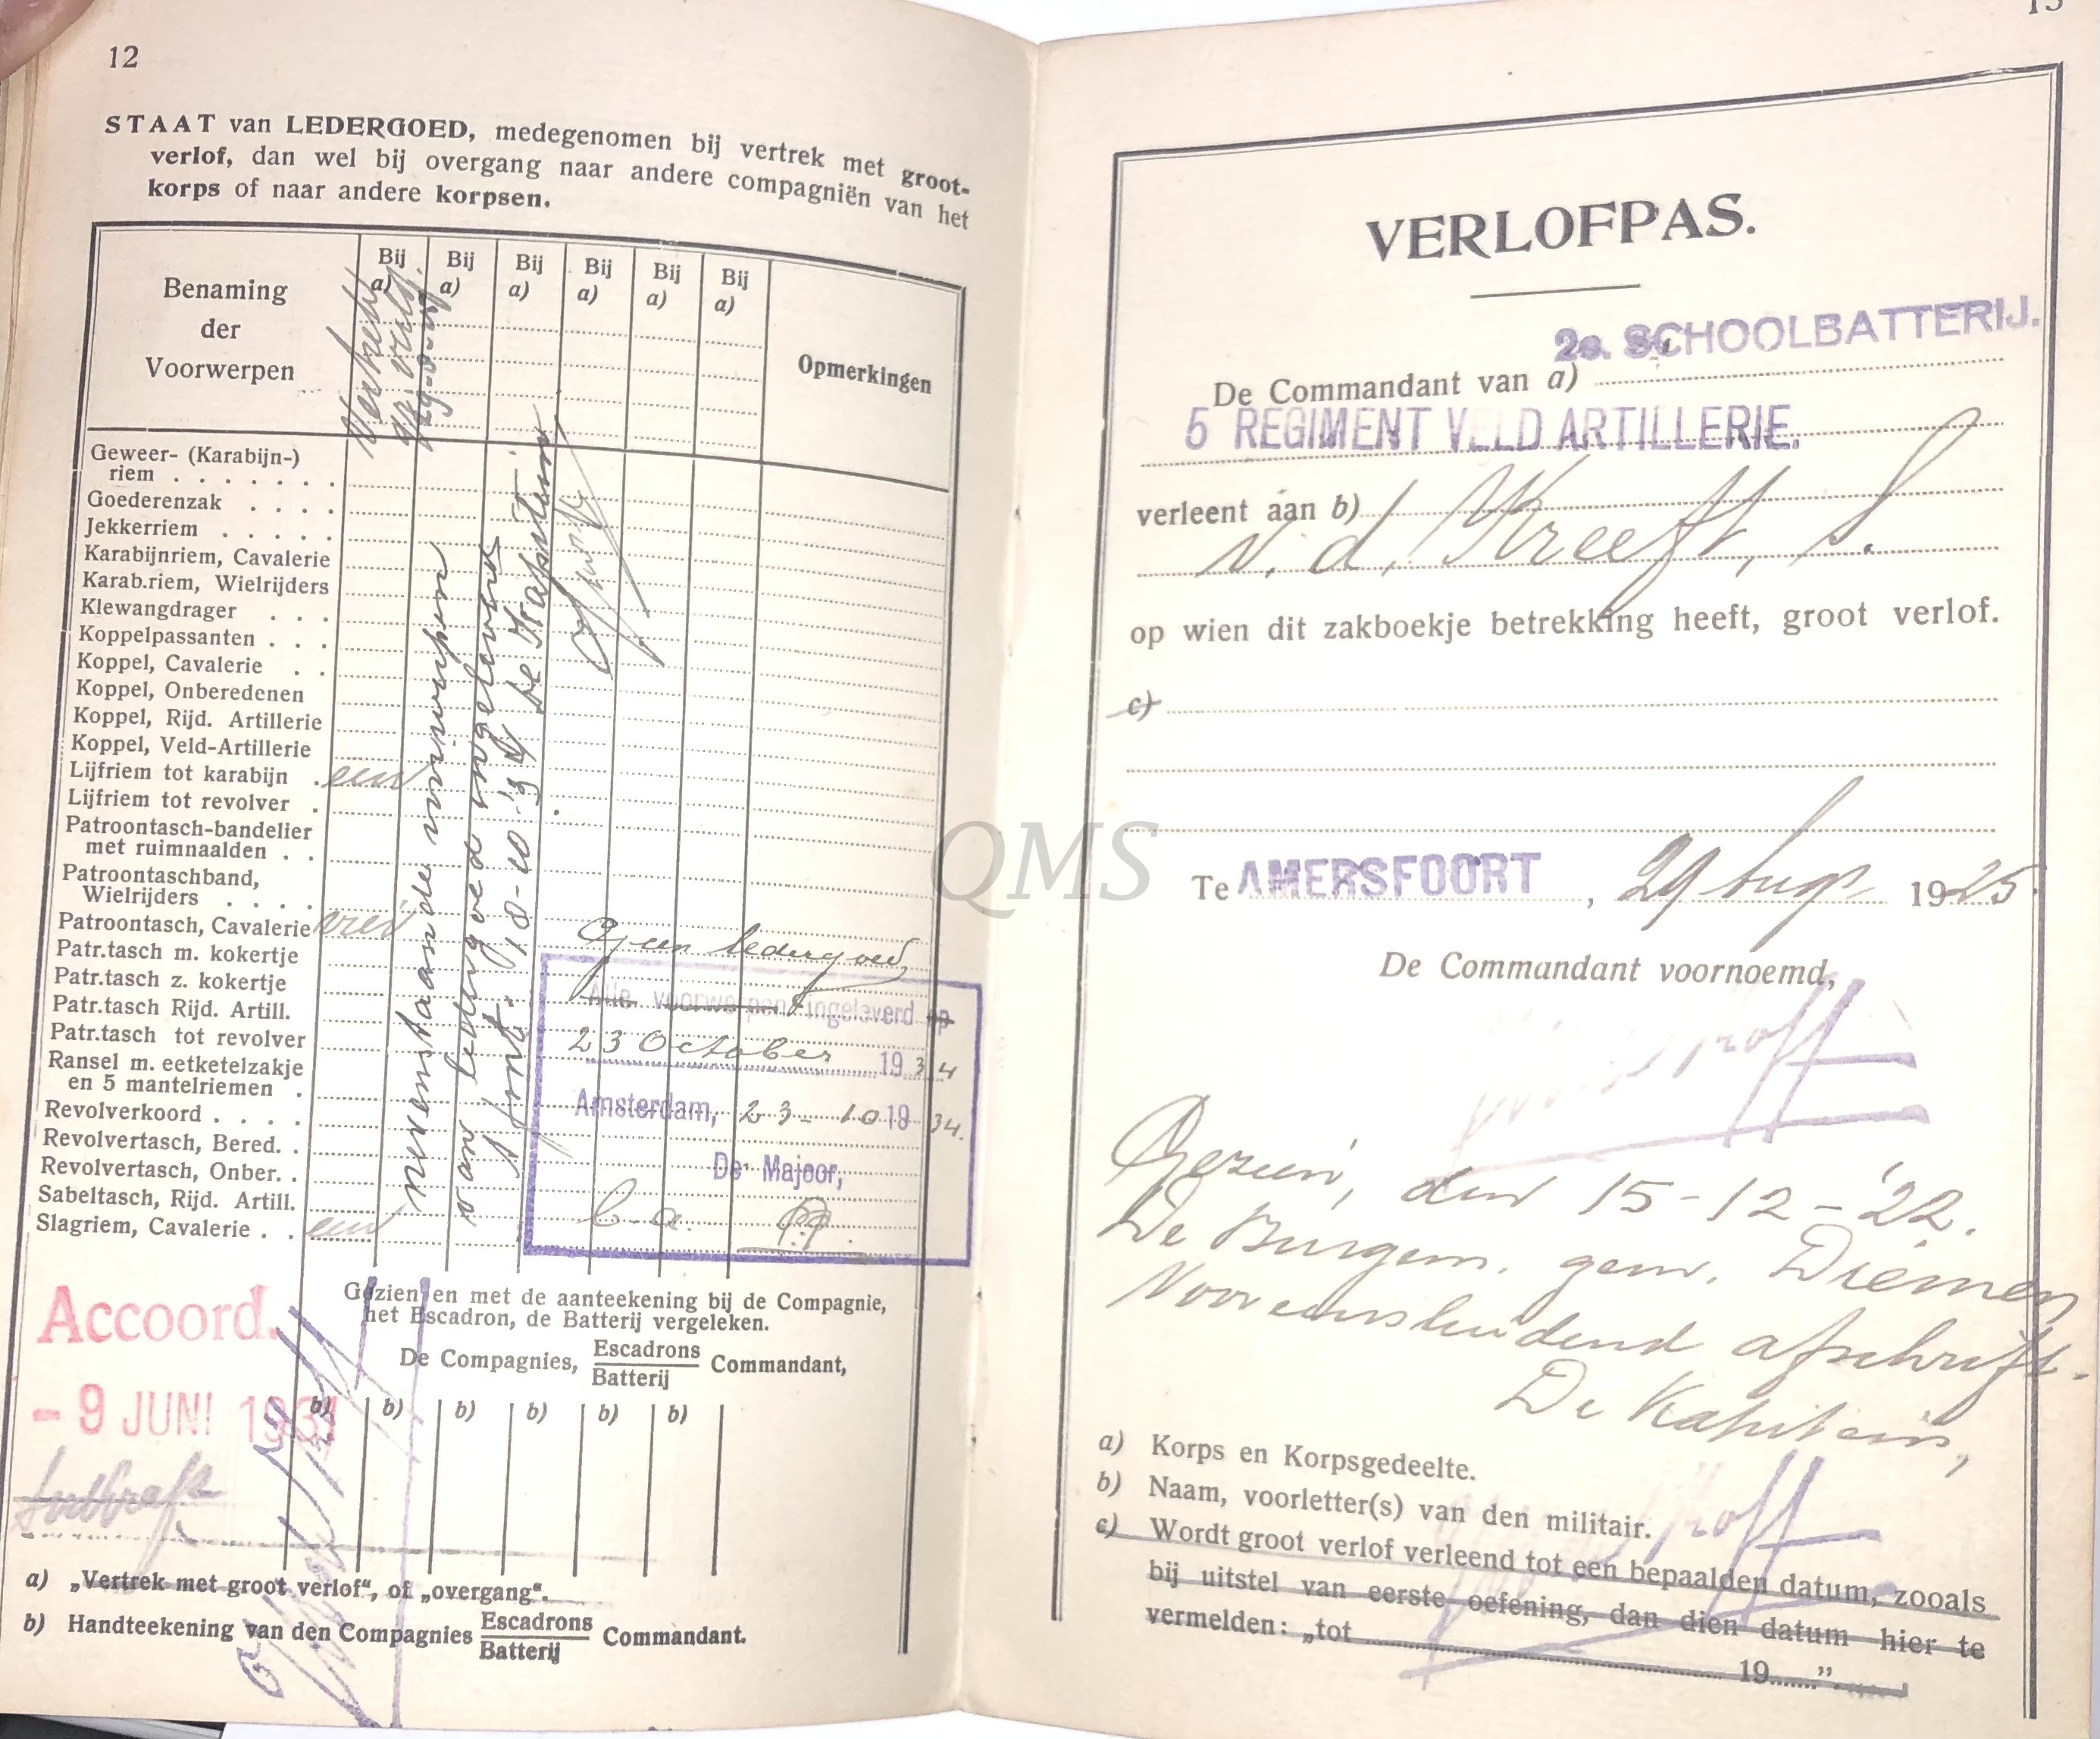 12
STAAT van LEDERGOED, medegenomen bij vertrek met groot-
verlof, dan wel bij overgang naar andere compagniën van het
korps of naar andere korpsen.
Benaming
der
Voorwerpen
Bij
a)
Bij
a)
Bij
a)
Bij
a)
Bij
a)
Bij
a)
Opmerkingen
Geweer- (Karabijn-)
riem
Goederenzak
Jekkerriem
Karabijnriem, Cavalerie
Karab.riem, Wielrijders
Klewangdrager
Koppelpassanten
Koppel, Cavalerie
Koppel, Onberedenen
Koppel, Rijd. Artillerie
Koppel, Veld-Artillerie
Lijfriem tot karabijn een
Lijfriem tot revolver
Patroontasch-bandelier
met ruimnaalden
Patroontaschband,
Wielrijders
Patroontasch, Cavalerie
Patr.tasch m. kokertje
Patr.tasch z. kokertje
Patr.tasch Rijd. Artill.
Patr.tasch tot revolver
Ransel m. eetketelzakje
en 5 mantelriemen
Revolverkoord
Revolvertasch, Bered.
Revolvertasch, Onber.
Sabeltasch, Rijd. Artill.
Slagriem, Cavalerie een
Vertrek
gr. verlof.
nevenstaande nummers
van ledergoed ingeleverd
18-10-'34 De Kapitein
Geen ledergoed
Alle voorwerpen ingeleverd op
23 October 1934
Amsterdam, 23-10 1934.
De Majoor,
b.a.
Gezien en met de aanteekening bij de Compagnie,
het Escadron, de Batterij vergeleken.
De Compagnies, Escadrons Commandant,
Batterij
b) b) b) b) b) b)
Accoord.
- 9 JUNI 1931
a) „Vertrek met groot verlof“, of „overgang“.
b) Handteekening van den Compagnies Escadrons Commandant.
Batterij
13
VERLOFPAS.
2e. SCHOOLBATTERIJ.
De Commandant van a)
5 REGIMENT VELD ARTILLERIE.
verleent aan b)
v. d. Kreeft, S.
op wien dit zakboekje betrekking heeft, groot verlof.
c)
Te AMERSFOORT, 29 Aug. 1925
De Commandant voornoemd,
Gezien, den 15-12-'22.
De Burgem. gem. Diemen
Voor eensluidend afschrift.
De Kapitein,
a) Korps en Korpsgedeelte.
b) Naam, voorletter(s) van den militair.
c) Wordt groot verlof verleend tot een bepaalden datum, zooals
bij uitstel van eerste oefening, dan dien datum hier te
vermelden: „tot
19......”
QMS